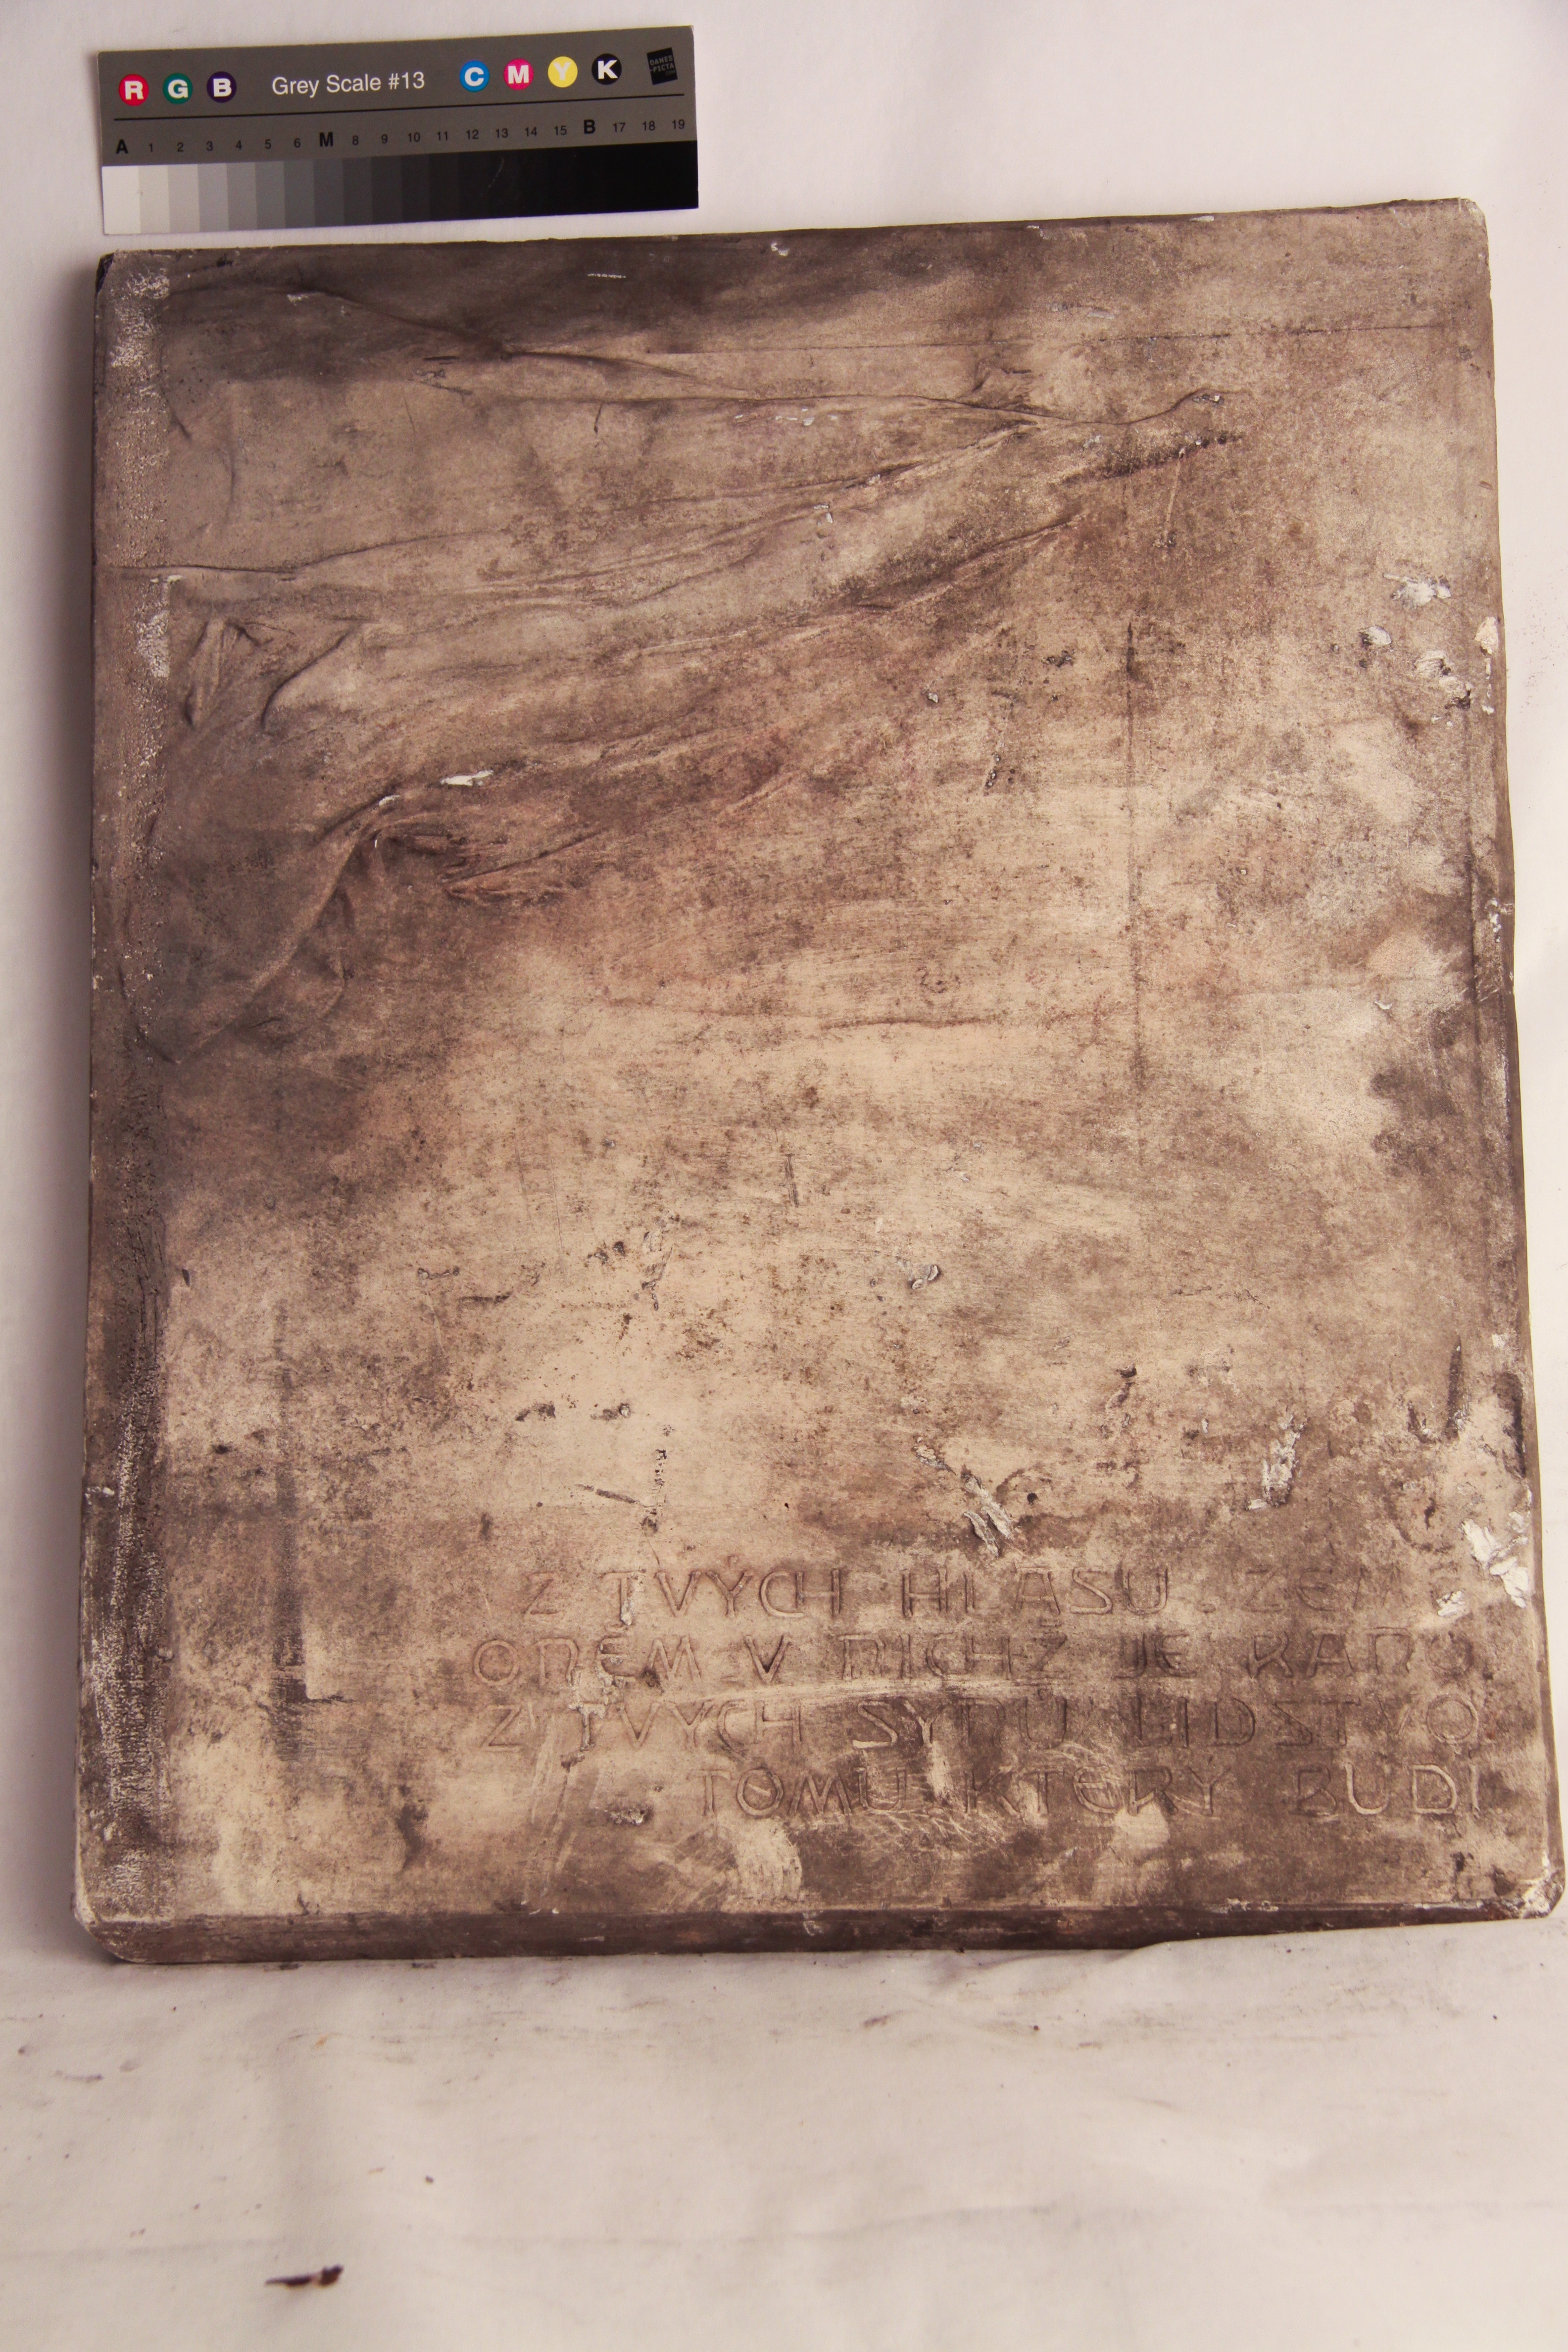 R G B Grey Scale #13 C M Y K DANES -PICTA
A 1 2 3 4 5 6 M 8 9 10 11 12 13 14 15 B 17 18 19
Z TVÝCH HLASU.
ONĚM V NICHŽ JE RANO
Z TVÝCH SYNŮ LIDSTVO
TOMU KTERÝ BUDÍ